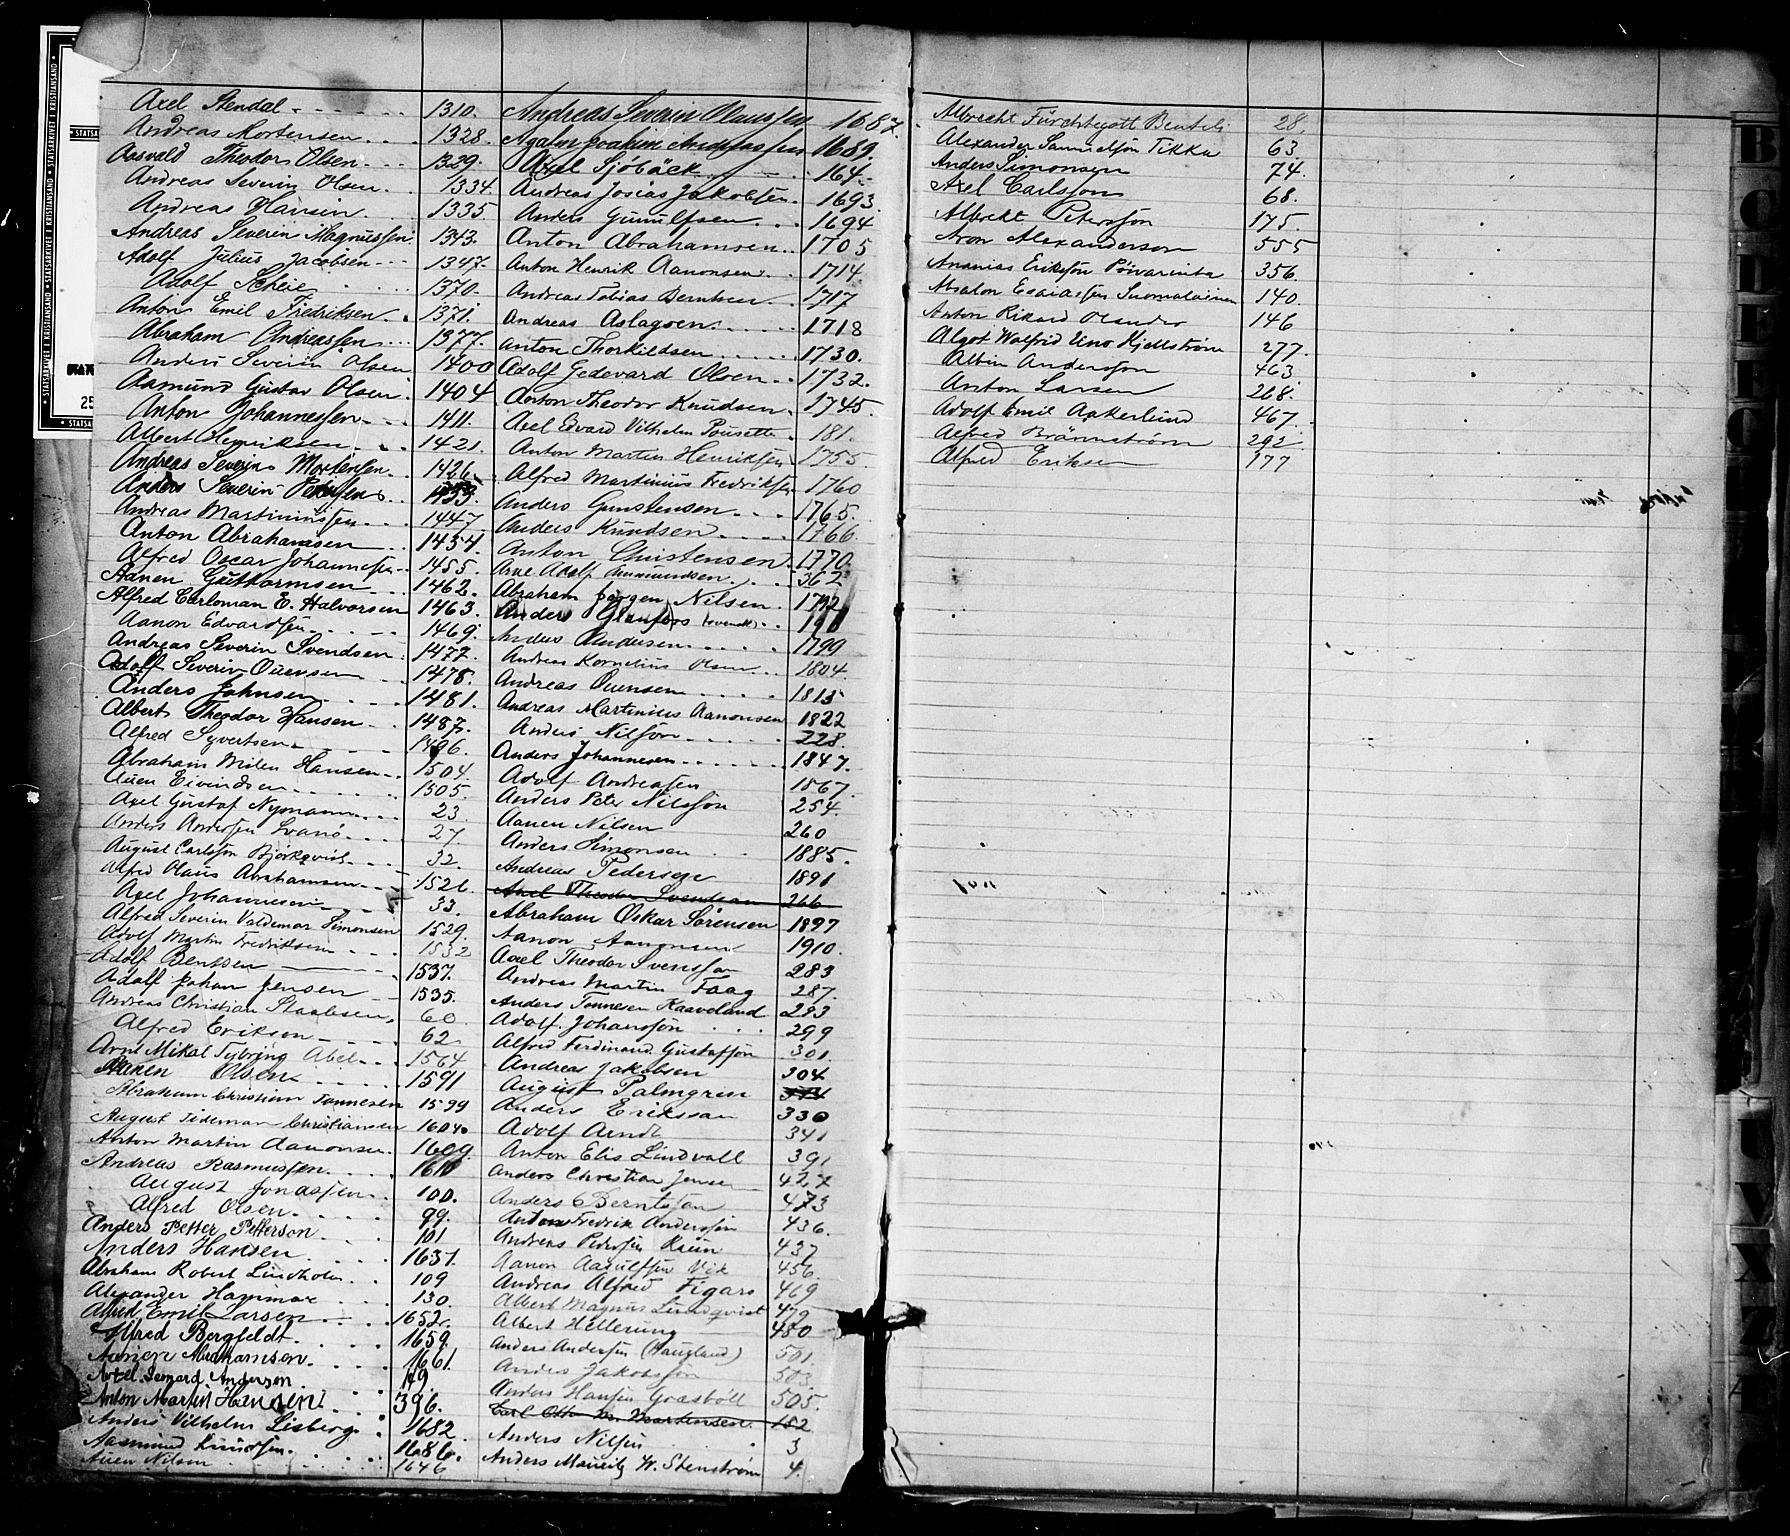 Axel Stendal 1310.
Andreas Mortensen 1328.
Aasvald Theodor Olsen 1329.
Andreas Severin Olsen 1334.
Andreas Hansen 1335
Andreas Severin Magnussen 1343.
Adolf Julius Jacobsen 1347.
Adolf Scheie 1370.
Anton Emil Fredriksen 1371.
Abraham Andreassen 1377.
Anders Severin Olsen 1400
Aasmund Gustav Olsen 1404
Anton Johannessen 1411.
Albert Henriksen 1421.
Andreas Severin Mortensen 1426.
Anders Severin Petersen 1433.
Andreas Martiniussen 1447.
Anton Abrahamsen 1454
Alfred Oscar Johannessen 1455.
Aanen Guttormsen 1462.
Alfred Carloman E. Halvorsen 1463.
Aanon Edvardsen 1469.
Andreas Severin Svendsen 1477.
Adolf Severin Ouensen 1478.
Anders Johnsen 1481.
Albert Theodor Hansen 1487.
Alfred Syvertsen 1496.
Abraham Milen Hansen 1504.
Auen Eivindsen 1505.
Axel Gustaf Nyman 23.
Anders Andersen Svanö 27
August Carlsson Björkqvist 32.
Alfred Olaus Abrahamsen 1526.
Axel Johannesen 33.
Alfred Severin Valdemar Simonsen 1529.
Adolf Martin Fredriksen 1532
Adolf Bentsen 1537.
Adolf Johan Jensen 1535.
Andreas Christian Staalesen 60
Alfred Erikson 62
Arnt Mikal Tybring Abel 1564
Aanen Olsen 1591
Abraham Christian Tønnesen 1599
August Tideman Christiansen 1604
Anton Martin Aanonsen 1609
Andreas Rasmussen 1610
August Jonassen 100.
Alfred Olsen 99.
Anders Petter Petterson 101
Anders Hansen 1631.
Abraham Robert Lindholm 109
Alexander Hammar 130.
Alfred Emil Larsen 1652.
Alfred Bergfeldt 1659.
Aanen Abrahamsen 1661.
Axel Leonard Anderson 149.
Anton Martin Hansen 396.
Anders Vilhelm Lisberg 1682.
Aasmund Knudsen 1686.
Auen Nilsen 1646
Andreas Severin Olaussen 1687.
Agaton Joakim Andreassen 1689.
Axel Sjöbäck 164
Andreas Josias Jakobsen 1693
Anders Gunulfsen 1694
Anton Abrahamsen 1705
Anton Henrik Aanonsen 1714
Andreas Tobias Berntsen 1717
Andreas Aslagsen 1718
Anton Thorkildsen 1730.
Adolf Gedevard Olsen 1732.
Anton Theodor Knudsen 1745.
Axel Edvard Vilhelm Pousette 181.
Anton Martin Henriksen 1755.
Alfred Martinius Fredriksen 1760
Anders Gunstensen 1765.
Anders Knudsen 1766.
Anton Christensen 1770.
Arne Adolf Gunnuundsen 362
Abraham Jørgen Nilsen 1792
Anders Glanfors (svensk)
Anders Andersen 1799
Andreas Kornelius Olsen 1804.
Andreas Ouensen 1815
Andreas Martinius Aanonsen 1822
Anders Nilsön 228.
Anders Johannesen 1847.
Adolf Andreassen 1567.
Anders Peter Nilsson 254.
Aanen Nilsen 260
Anders Simonsen 1885.
Andreas Pedersen 1891
Axel Theodor Svendsen 266
Abraham Oskar Sørensen 1897
Aanon Aanonsen 1910.
Axel Theodor Svensson 283
Andreas Martin Faag 287.
Anders Tønnesen Kaaveland 293
Adolf Johansson 299
Alfred Ferdinand Gustafson 301
Andreas Jakobsen 304
August Palmgren 314
Anders Eriksson 330
Adolf Arndt 341
Anton Elis Lindvall 391
Anders Christian Jensen 427
Anders Berntsson 473
Anton Fredrik Andersson 436
Andreas Pedersen Kauen 437
Aanon Aasulfsen Vik 456
Andreas Alfred Figaro 469
Albert Magnus Lundqvist 479
Albert Hellerung 480
Anders Andersen (Haugland) 501
Anders Jakobsson 503
Anders Hansen Graaböll 505.
Carl Otto M. Martensen 152
Anders Nilsen 3
Anders Mauritz W. Stenström 4.
Albrecht Fürchtegott Benteli 28.
Alexander Samuelson Tikka 63.
Anders Simonsen 74.
Axel Carlsson 68.
Albrekt Petersson 175.
Aron Alexanderson 555
Ananias Eriksson Poivarinta 356
Absalon Esaiassen Suomalainen 140.
Anton Rikard Olander 146
Algot Walfrid Uno Kjellström 277.
Albin Andersson 463
Anton Larsen 268.
Adolf Emil Aakerlund 467.
Alfred Brännström 292
Alfred Eriksen 177
STATSARKIVET I KRISTIANSAND
B
D
E
V
X
Z